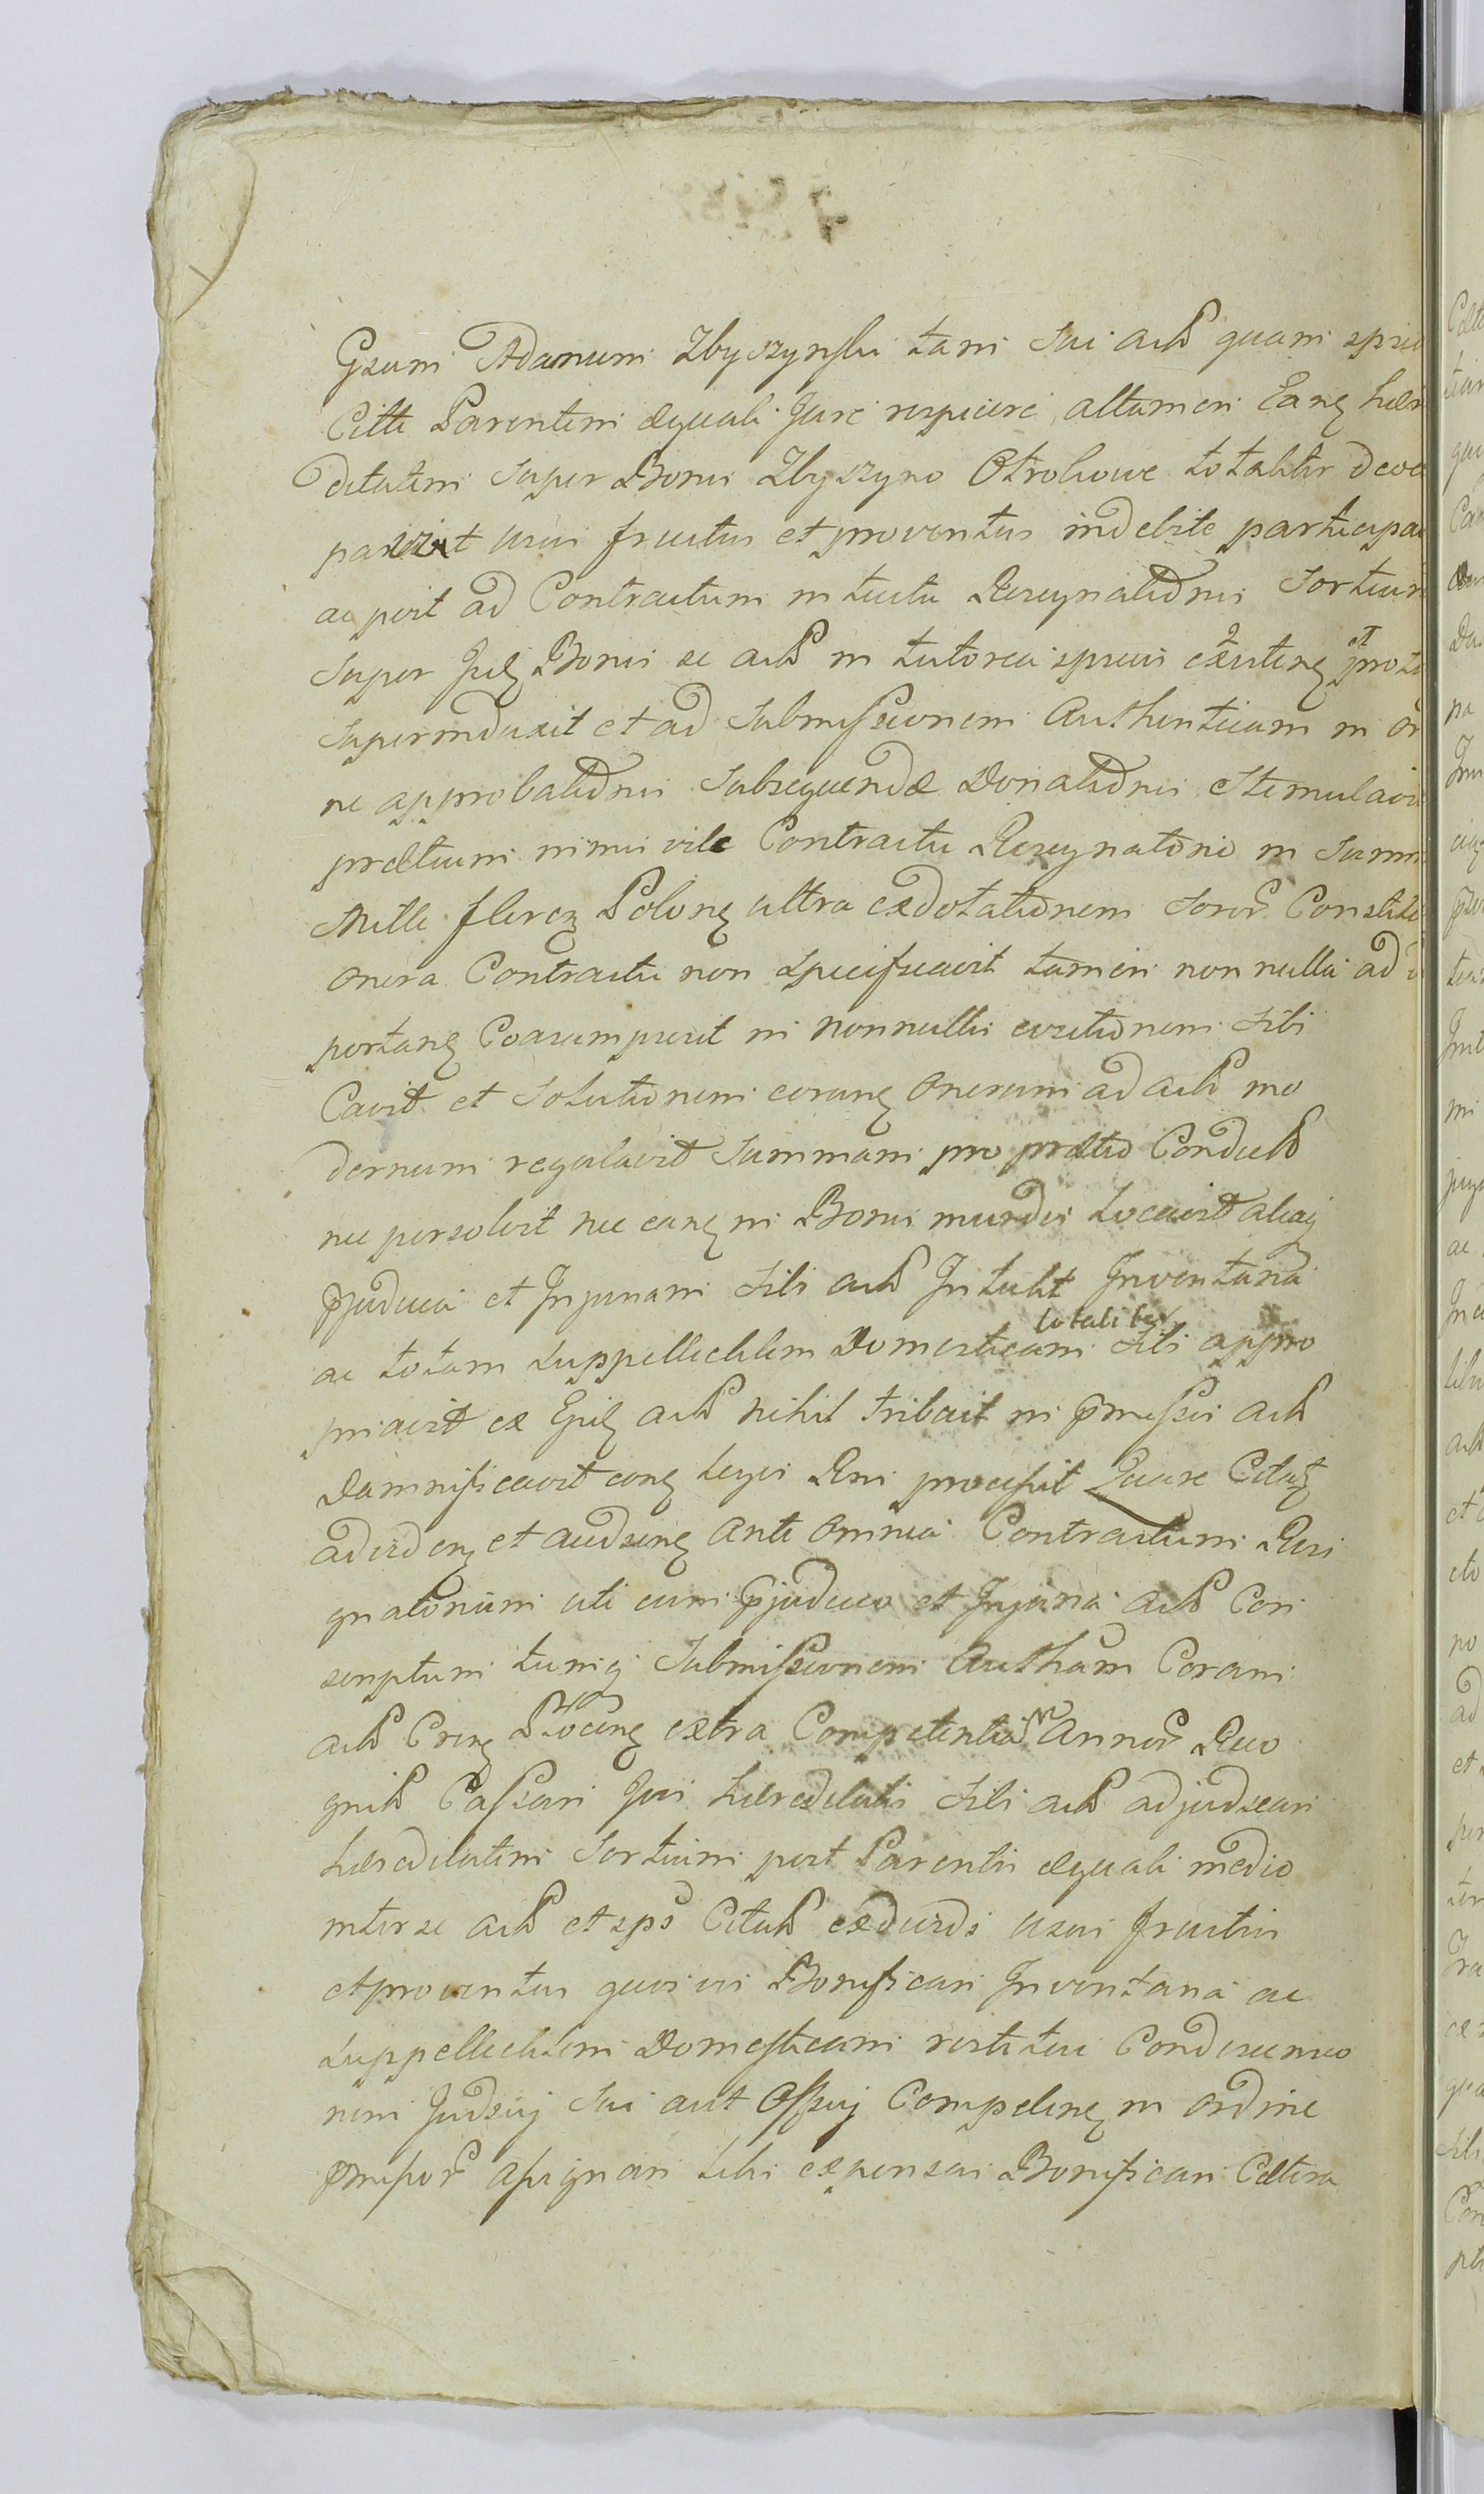 Gsum Adamum Zbyszynski tam sui actis quam ipsius
Citti Parentem æquali Jure respicere, attamen Eanq hære
ditatem super Bonis Zbyszyno Otrohowe totaliter devoc
pavit usus fructus et proventus indebite participa
ac post ad Contractum intuitu Resignationis Sortium
super Jisd Bonis se acts in tutorea ipsius existenq et prote
superinduxit et ad Submissionem Authenticam in or
ne approbationis Subsequendæ Donationis Stimulavit
prætium nimis vile Contractu Resignatorio in Summ
Mille flirez Polonq ultra exdotationem Soror Constit
onera Contractu non specificavit tamen non nulla ad
portanq Coassumpsit in nonnullis evictionem Sibi
Cavit et Solutionem eorunq onerum ad acts mo
dernum regulavit Summam pro prætio Conduct
nec persolvit nec eanq in Bonis mundis Locavit aliaq
pjudicia et Injuriam Sibi acts Intulit Inventaria
ac totam suppellectilem Domesticam totaliter Sibi appro
priavit ex Ejusd acts nihil tribuit in pmissis acts
Damnificavit conq leges Rni processit Quare Citatq
ad vidend et audienq ante omnia Contractum Resi
gnatorium uti cum pjudicio et Injuria acts Con
scriptum tumq Submissionem Autham Coram
acts Cren Plocenq extra Competentiam Annor Reco
gnit Cassari Jus hæreditatis Sibi acts adjudicari
hæreditatem Sortium post Parentis æquali medio
inter se acts et ips Citats exdividi usus fructus
et proventus quosvis Bonificari Inventaria ac
suppellectilem Domesticam restitui Condescensio
nem Judicij sui aut officij Competenq in ordine
pmissor assignari Litis expensas Bonificari Cætera